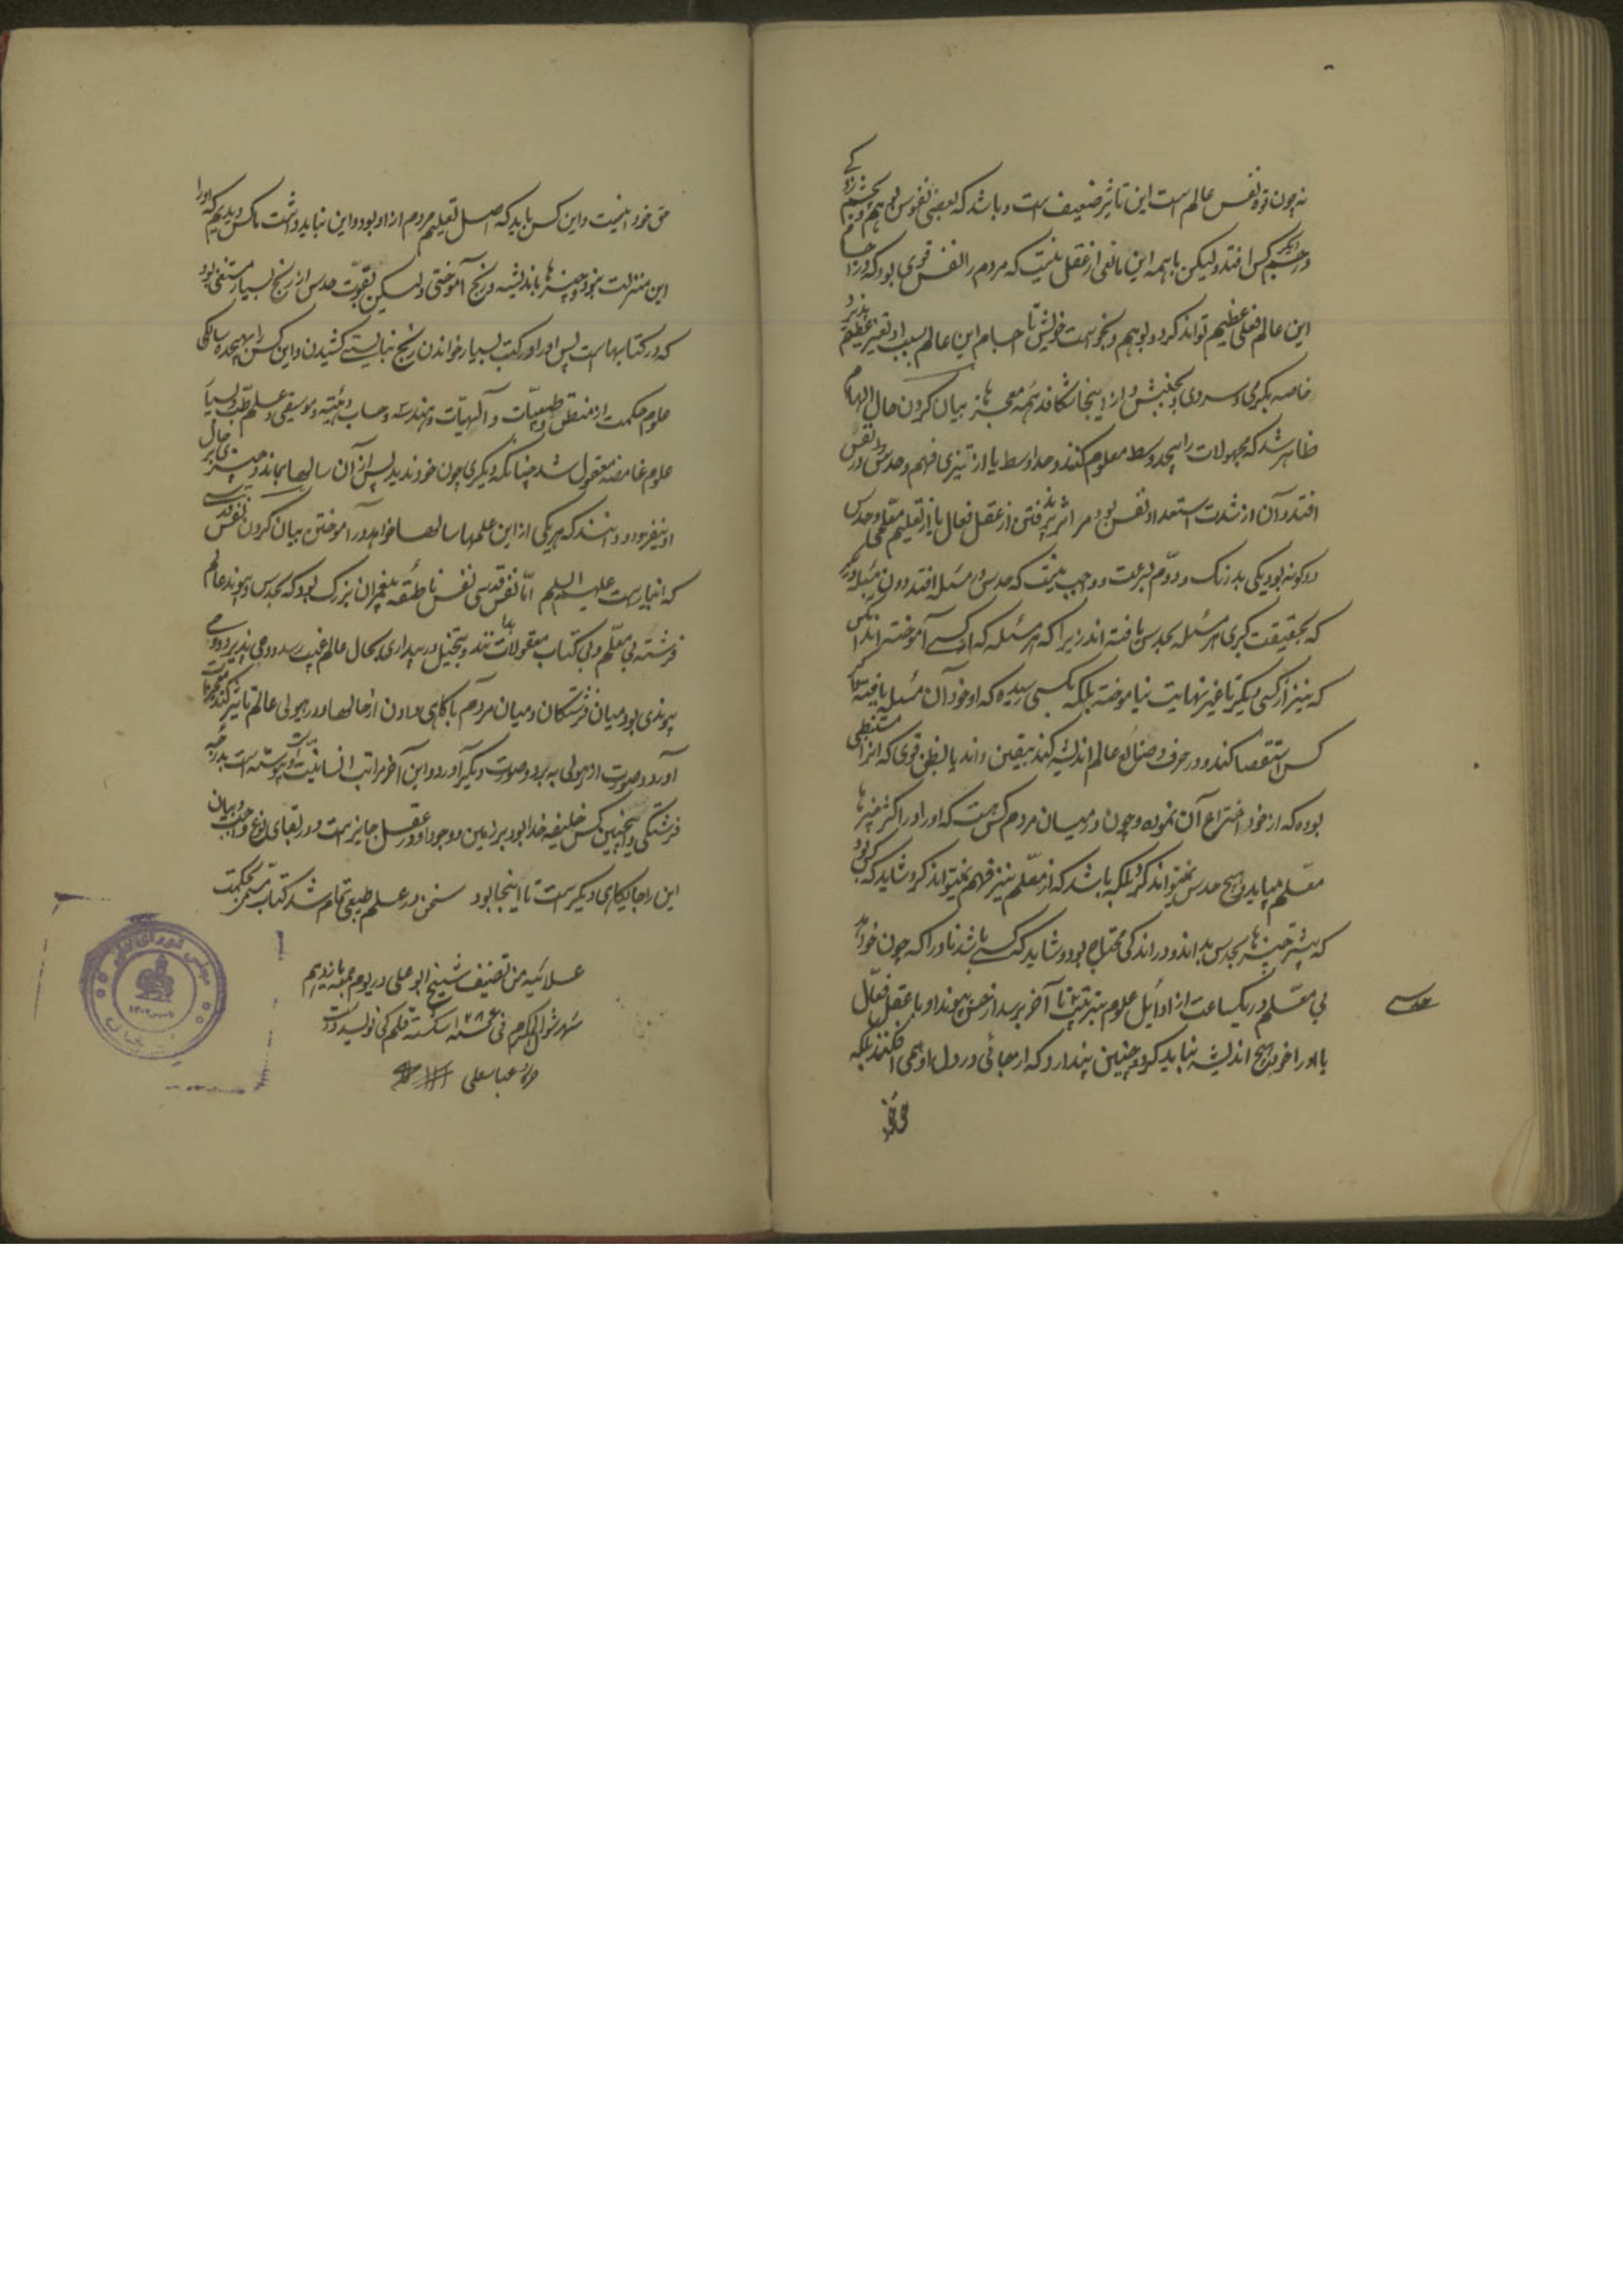 نه چون قوه نفس عالم است این تاثیر ضعیف است و باشد که بعضی نفوس بوهم و بچشم زدگی
در جسم دیگر کس افتد ولیکن با همه این مانعی از عقل نیست که مردم را نفس قوی بود که در اجسام
این عالم فعلی عظیم تواند کرد بوهم و بخواست خویش تا اجسام این عالم بسبب او تغیر عظیم پذیرد
خاصه بگرمی و سردی و بجنبش و از اینجا شکافد همه معجزها بیان کردن حال الهام
ظاهر شد که مجهولات را بحد وسط معلوم کنند و حد اوسط یا از تیزی فهم و حدس در نفس
افتد و آن از شدت استعداد نفس بود مر اثر پذیرفتن از عقل فعال یا از تعلیم معلمی و حدس
دو گونه بود یکی بدرنگ و دوم بسرعت و واجب نیست که حدس در مسئله افتد دون مسئله دیگر
که بحقیقت نگری هر مسئله بحدس یافته اند زیرا که هر مسئله که از کسی آموخته اند آنکس
که نیز از کسی دیگر تا غیر نهایت نیاموخته بلکه بکسی رسیده که او خود آن مسئله یافته
کس استقصا کند و در حرف و صنایع عالم اندیشه کند بیقین داند یا بظن قوی که آنرا مستنبطی
بوده که از خود اختراع آن نموده و چون در میان مردم کس هست که او را در اکثر چیزها
معلم میباید و هیچ حدس نتواند کرد بلکه باشد که از معلم نیز فهم نتواند کرد شاید که کس بود
که بیشتر چیزها بحدس بداند و در اندکی محتاج بود و شاید که کسی باشد نادرا که چون خواهد
بی معلم در یکساعت از اوایل علوم بترتیب تا آخر برسد از حسن پیوند او با عقل فعال
تا او را خود هیچ اندیشه نباید کرد و چنین پندارد که از جائی در دل او همی افکنند بلکه
حدسی
حق خود اینست و این کس باید که اصل تعلیم مردم از او بود و این نباید داشت ما کس دیدیم که او را
این منزلت نبود و چیزها باندیشه و رنج آموختی ولیکن بقوت حدس از رنج بسیار مستغنی بود
که در کتابهاست پس او را در کتب بسیار خواندن رنج نبایستی کشیدن و این کس را بهیجده سالگی
علوم حکمت از منطق و طبیعیات و الهیات و هندسه و حساب و هیئت و موسیقی و علم طب و بسیار
علوم غامضه معقول شد چنانکه دیگری چون خود ندید پس از آن سالها بماند و چیزی بر حال
او نیفزود و دانند که هر یکی از این علمها سالها خواهد در آموختن بیان کردن نفس قدسی
که انبیا راست علیهم السلم اما نفس قدسی نفس ناطقه پیغمبران بزرگ بود که بحدس و پیوند عالم
فرشته بی معلم و بی کتاب معقولات بداند و بتخیل در بیداری بحال عالم غیب رسد و وحی پذیرد و وحی
پیوندی بود میان فرشتگان و میان مردم با گاهی دادن از حالها و در هیولی عالم تاثیر کند تا معجزات
آورد و صورت از هیولی ببرد و صورت دیگر آورد و این آخر مراتب انسانیت و پیوسته است بدرجه
فرشتگی و اینچنین کس خلیفه خدا بود بر زمین و وجود او در عقل جایز است و در بقای نوع واجب و بیان
این را جایگاهی دیگر است تا اینجا بود سخن در علم طبیعی تمام شد کتاب حکمت
علائیه من تصنیف شیخ ابو علی در یوم جمعه یازدهم
شهر شوال المکرم فی سنه ۱۲۸ شکسته قلم
عباسعلی